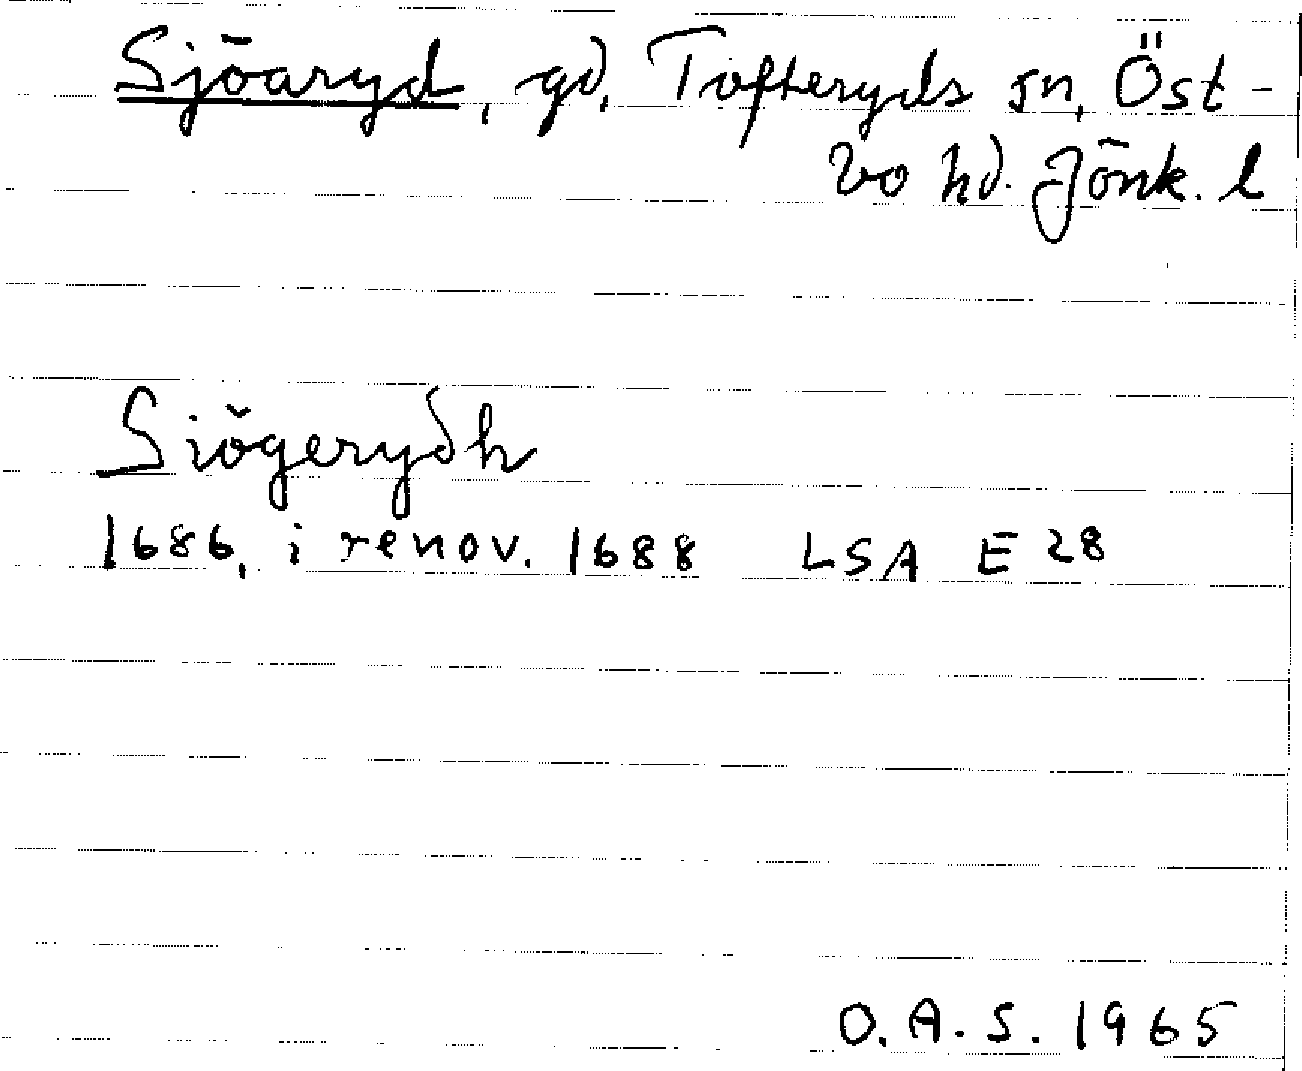 Sjöaryd, gd, Tofteryds sn, Öst-
bo hd. Jönk. l
Siögerydh
1686, i renov. 1688 LSA E 28
O.A.S. 1965